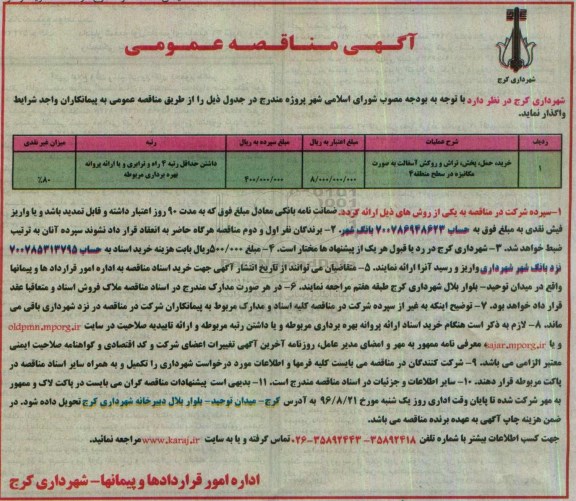 آگهی مناقصه عمومی
شهرداری کرج
شهرداری کرج در نظر دارد با توجه به بودجه مصوب شورای اسلامی شهر پروژه مندرج در جدول ذیل را از طریق مناقصه عمومی به پیمانکاران واجد شرایط
واگذار نماید.
ردیف شرح عملیات مبلغ اعتبار به ریال مبلغ سپرده به ریال رتبه میزان غیر نقدی
۱ خرید، حمل، پخش، تراش و روکش آسفالت به صورت مکانیزه در سطح منطقه ۴ ۸/۰۰۰/۰۰۰/۰۰۰ ۴۰۰/۰۰۰/۰۰۰ داشتن حداقل رتبه ۴ راه و ترابری و یا ارائه پروانه بهره برداری مربوطه ۸۰٪
۱-سپرده شرکت در مناقصه به یکی از روش های ذیل ارائه گردد. ضمانت نامه بانکی معادل مبلغ فوق که به مدت ۹۰ روز اعتبار داشته و قابل تمدید باشد و یا واریز
فیش نقدی به مبلغ فوق به حساب ۷۰۰۷۸۶۹۴۸۶۲۳ بانک شهر. ۲- برندگان نفر اول و دوم مناقصه هرگاه حاضر به انعقاد قرار داد نشوند سپرده آنان به ترتیب
ضبط خواهد شد. ۳- شهرداری کرج در رد یا قبول هر یک از پیشنهاد ها مختار است. ۴- مبلغ ۵۰۰/۰۰۰ریال بابت هزینه خرید اسناد به حساب ۷۰۰۷۸۵۳۱۳۷۹۵
نزد بانک شهر شهرداری واریز و رسید آنرا ارائه نمایند. ۵- متقاضیان می توانند از تاریخ انتشار آگهی جهت خرید اسناد مناقصه به اداره امور قرارداد ها و پیمانها
واقع در میدان توحید- بلوار بلال شهرداری کرج طبقه هفتم مراجعه نمایند. ۶- در هر صورت مدارک مندرج در اسناد مناقصه ملاک فروش اسناد و متعاقبا عقد
قرار داد خواهد بود. ۷- توضیح اینکه به غیر از سپرده شرکت در مناقصه کلیه اسناد و مدارک مربوط به پیمانکاران شرکت در مناقصه در نزد شهرداری باقی می
ماند. ۸- لازم به ذکر است هنگام خرید اسناد ارائه پروانه بهره برداری مربوطه و یا داشتن رتبه مربوطه و ارائه تاییدیه صلاحیت در سایت oldpmn.mporg.ir
و یا sajar.mporg.ir معرفی نامه ممهور به مهر و امضای مدیر عامل، روزنامه آخرین آگهی تغییرات اعضای شرکت و کد اقتصادی و گواهنامه صلاحیت ایمنی
معتبر الزامی می باشد. ۹- شرکت کنندگان در مناقصه می بایست کلیه فرمها و اطلاعات مورد درخواست شهرداری را تکمیل و به همراه سایر اسناد مناقصه در
پاکت مربوطه قرار دهند. ۱۰- سایر اطلاعات و جزئیات در اسناد مناقصه مندرج است. ۱۱- بدیهی است پیشنهادات مناقصه گران می بایست در پاکت لاک و ممهور
به مهر شرکت شده تا پایان وقت اداری روز یک شنبه مورخ ۹۶/۸/۲۱ به آدرس کرج- میدان توحید- بلوار بلال دبیرخانه شهرداری کرج تحویل داده شود. در
ضمن هزینه چاپ آگهی به عهده برنده مناقصه می باشد.
جهت کسب اطلاعات بیشتر با شماره تلفن ۳۵۸۹۲۴۱۸- ۰۲۶-۳۵۸۹۲۴۴۳ تماس گرفته و یا به سایت www.karaj.ir مراجعه نمائید.
اداره امور قراردادها و پیمانها- شهرداری کرج